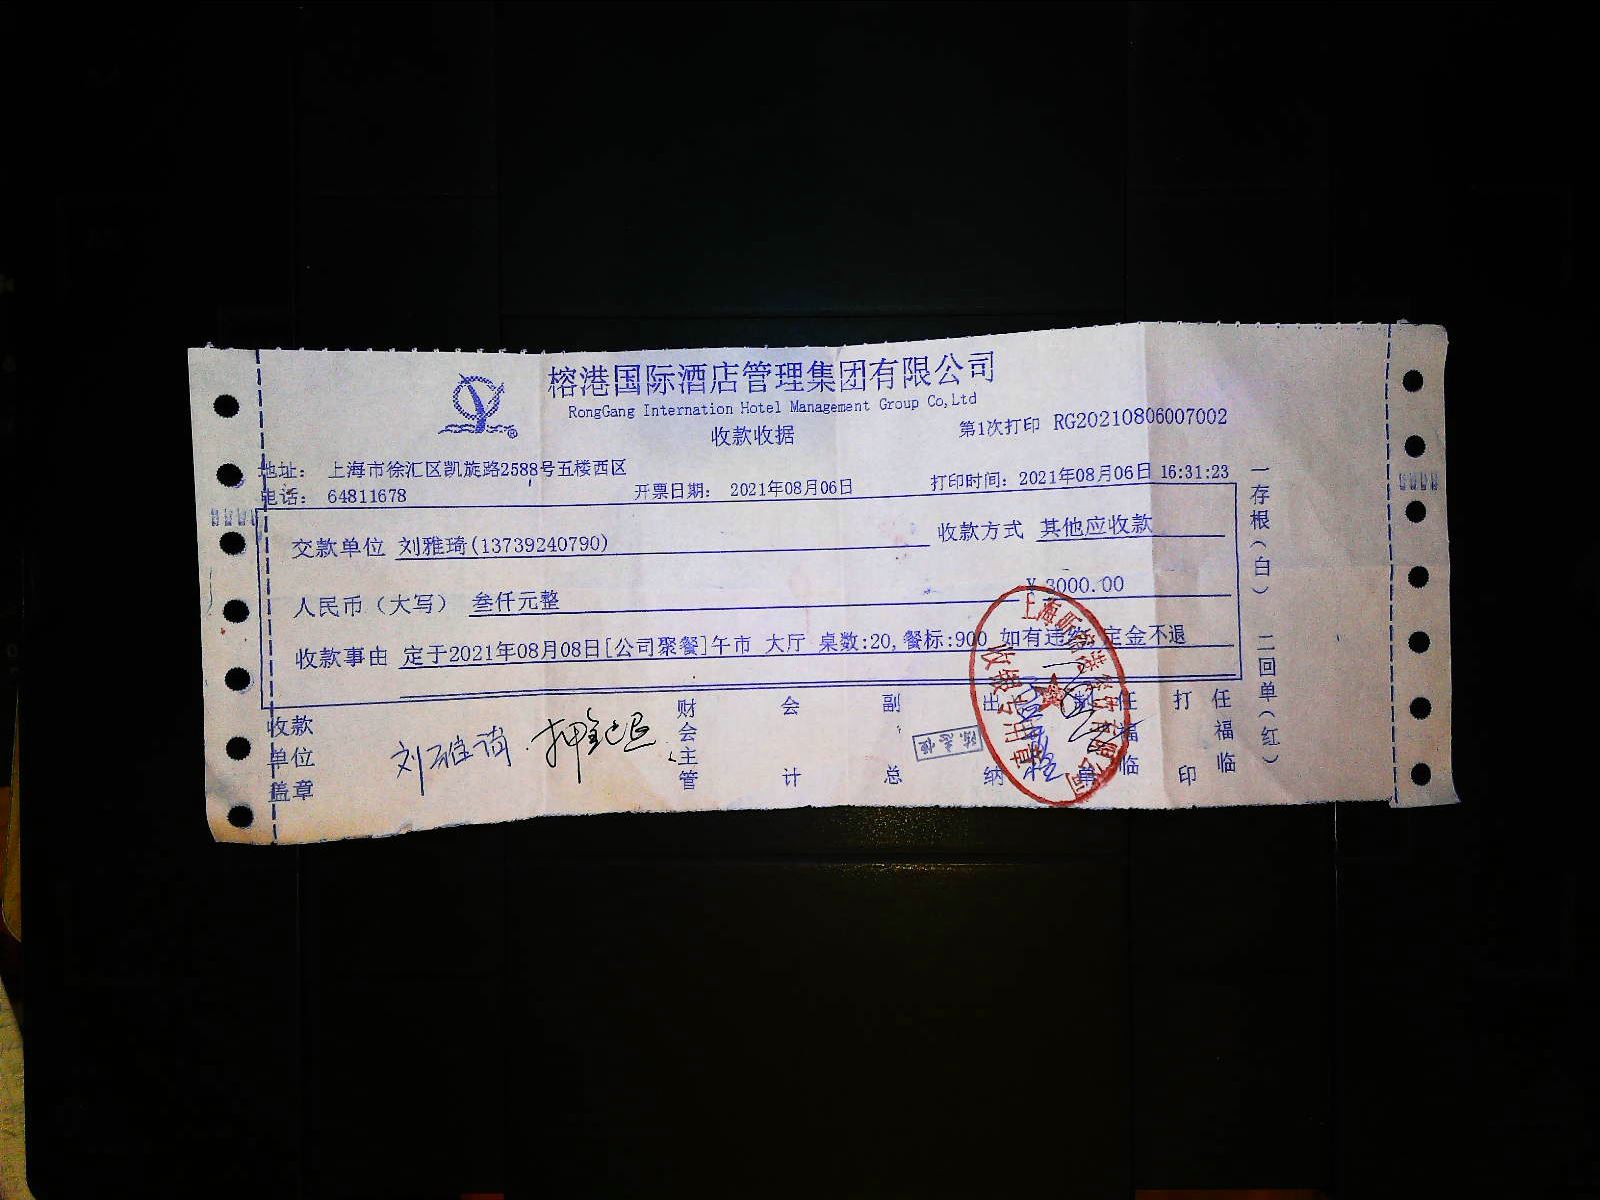 榕港国际酒店管理集团有限公司
RongGang Internation Hotel Management Group Co,Ltd
收款收据
第1次打印 RG20210806007002
地址： 上海市徐汇区凯旋路2588号五楼西区
电话： 64811678
开票日期： 2021年08月06日
打印时间：2021年08月06日 16:31:23
交款单位 刘雅琦(13739240790)
收款方式 其他应收款
人民币（大写） 叁仟元整
¥ 3000.00
收款事由 定于2021年08月08日[公司聚餐]午市 大厅 桌数:20,餐标:900 如有违约 定金不退
一存根（白） 二回单（红）
收款单位盖章
刘雅琦 押金退
财会主管
会计
副总
出纳
任福临
打印
任福临